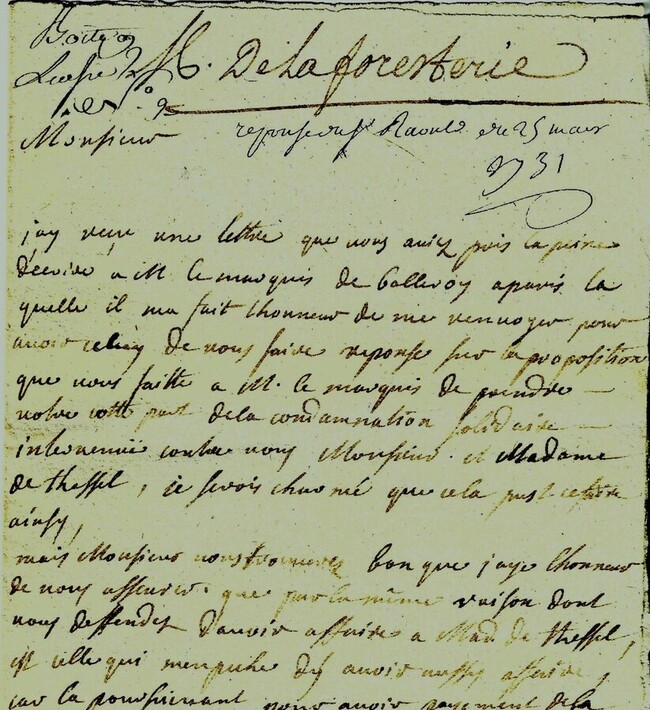 M. De La foresterie
Monsieur
reponse du Sr Raoult du 25 mars
1731
j'ay veu une lettre que vous aviez pris la peine
d'ecrire a M le marquis de balleroy a paris la
quelle il ma fait lhonneur de me renvoyer pour
avoir celuy de vous faire reponse sur la proposition
que vous faitte a M. le marquis de prendre
votre cotte part de la condamnation solidaire
intervenuë contre vous Monsieur et Madame
de thessel, je serois charmé que cela pust se faire
ainsy,
mais Monsieur vous trouverez bon que jaye lhonneur
de vous asseurer que par la même raison dont
vous deffendez d'avoir affaire a Mad. de thessel,
est celle qui m'enpeche dy avoir aussy affaire,
car la poursuivant pour avoir payement de la